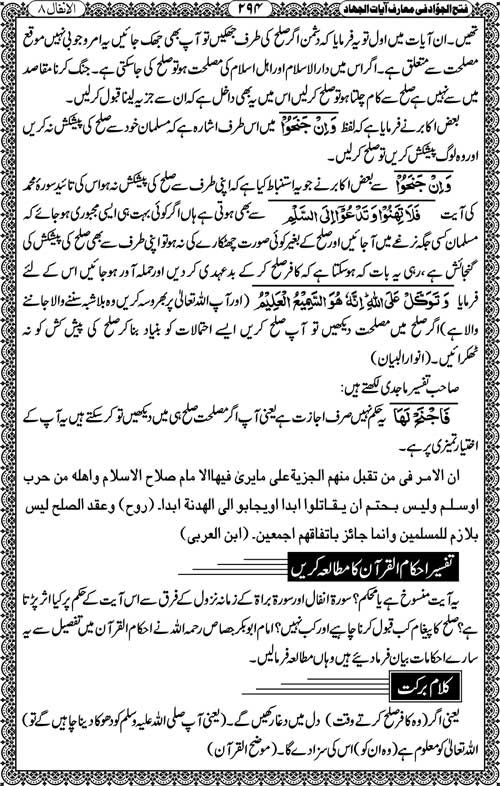 فتح الجوّاد فی معارف آیات الجهاد ۲۹۴ الانفال ۸
تھیں۔ ان آیات میں اول تو یہ فرمایا کہ دشمن اگر صلح کی طرف جھکیں تو آپ بھی جھک جائیں یہ امر وجوبی نہیں موقع
مصلحت سے متعلق ہے۔ اگر اس میں دارالاسلام اور اہل اسلام کی مصلحت ہو تو صلح کی جاسکتی ہے۔ جنگ کرنا مقاصد
میں سے نہیں ہے صلح سے کام چلتا ہو تو صلح کرلیں اس میں یہ بھی داخل ہے کہ ان سے جزیہ لینا قبول کرلیں۔
بعض اکابر نے فرمایا ہے کہ لفظ وَاِنْ جَنَحُوْا میں اس طرف اشارہ ہے کہ مسلمان خود سے صلح کی پیشکش نہ کریں
اور وہ لوگ پیشکش کریں تو صلح کرلیں۔
وَاِنْ جَنَحُوْا سے بعض اکابر نے جو یہ استنباط کیا ہے کہ اپنی طرف سے صلح کی پیشکش نہ ہو اس کی تائید سورۃ محمد
کی آیت فَلَا تَهِنُوْا وَتَدْعُوْا اِلَى السَّلْمِ سے بھی ہوتی ہے ہاں اگر کوئی بہت ہی ایسی مجبوری ہو جائے کہ
مسلمان کسی جگہ نرغے میں آجائیں اور صلح کے بغیر کوئی صورت چھٹکارے کی نہ ہو تو اپنی طرف سے بھی صلح کی پیشکش کی
گنجائش ہے، رہی یہ بات کہ ہوسکتا ہے کہ کافر صلح کر کے بدعہدی کردیں اور حملہ آور ہو جائیں اس کے لئے
فرمایا وَتَوَكَّلْ عَلَى اللّٰهِ اِنَّهٗ هُوَ السَّمِيْعُ الْعَلِيْمُ (اور آپ اللہ تعالیٰ پر بھروسہ کریں وہ بلاشبہ سننے والا جاننے
والا ہے) اگر صلح میں مصلحت دیکھیں تو آپ صلح کریں ایسے احتمالات کو بنیاد بنا کر صلح کی پیش کش کو نہ
ٹھکرائیں۔ (انوار البیان)
صاحب تفسیر ماجدی لکھتے ہیں:
فَاجْنَحْ لَهَا یہ حکم نہیں صرف اجازت ہے یعنی آپ اگر مصلحت صلح ہی میں دیکھیں تو کرسکتے ہیں یہ آپ کے
اختیار تمیزی پر ہے۔
ان الامر فى من تقبل منهم الجزية على مايرى فيها الامام صلاح الاسلام واهله من حرب
اوسلم وليس بحتم ان يقاتلوا ابدا اويجابو الى الهدنة ابدا۔ (روح) وعقد الصلح ليس
بلازم للمسلمين وانما جائز باتفاقهم اجمعين۔ (ابن العربى)
تفسیر احکام القرآن کا مطالعہ کریں
یہ آیت منسوخ ہے یا محکم؟ سورۃ انفال اور سورۃ براۃ کے زمانہ نزول کے فرق سے اس آیت کے حکم پر کیا اثر پڑتا
ہے؟ صلح کا پیغام کب قبول کرنا چاہیے اور کب نہیں؟ امام ابوبکر جصاص رحمہ اللہ نے احکام القرآن میں تفصیل سے یہ
سارے احکامات بیان فرما دیئے ہیں وہاں مطالعہ فرمالیں۔
کلام برکت
یعنی اگر (وہ کافر صلح کرتے وقت) دل میں دغا رکھیں گے۔ (یعنی آپ صلی اللہ علیہ وسلم کو دھوکا دینا چاہیں گے تو)
اللہ تعالیٰ کو معلوم ہے (وہ ان کو) اس کی سزا دے گا۔ (موضح القرآن)